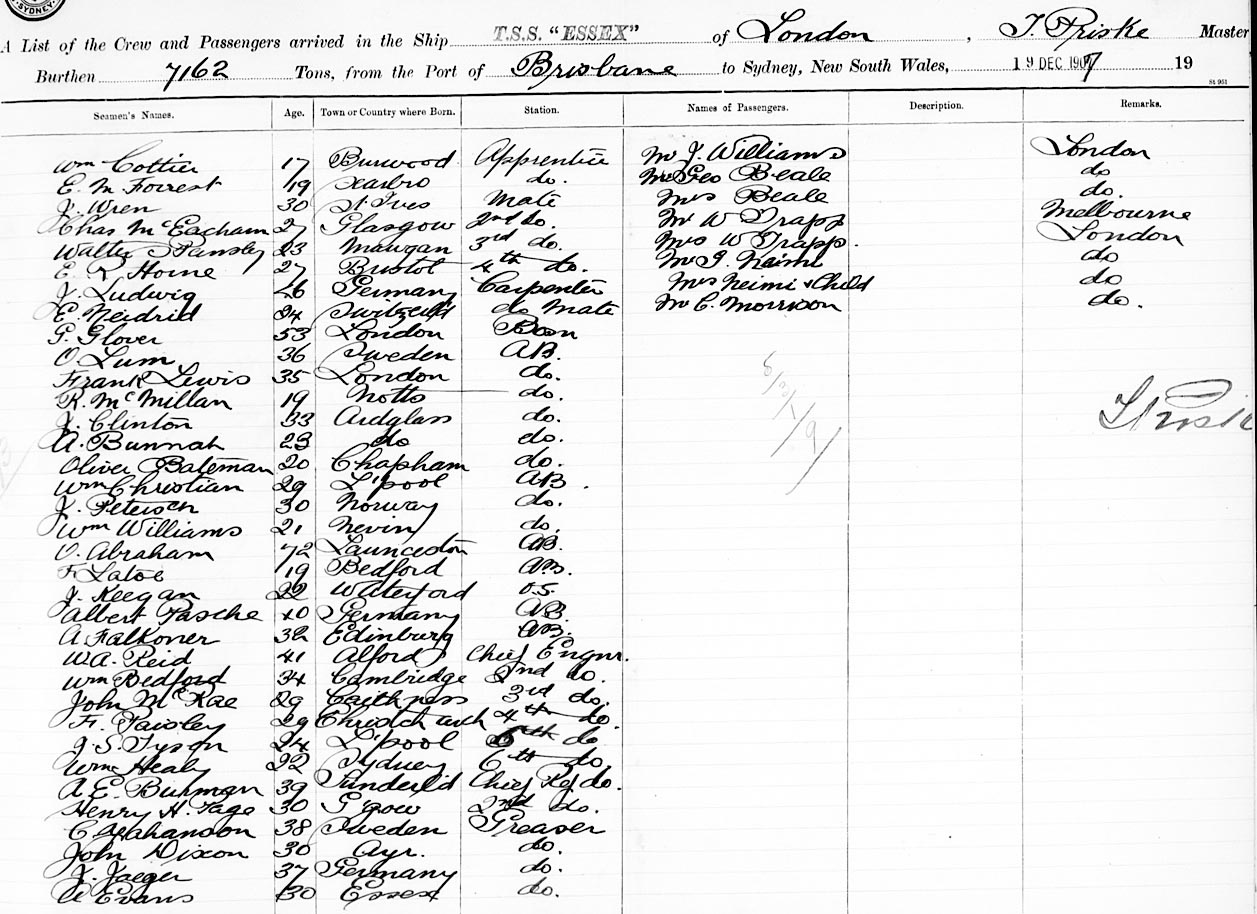 SYDNEY.
A List of the Crew and Passengers arrived in the Ship T.S.S. "ESSEX" of London, T. Priske Master
Burthen 7162 Tons, from the Port of Brisbane to Sydney, New South Wales, 19 DEC 1907 19
St 951
Seamen's Names. Age. Town or Country where Born. Station. Names of Passengers. Description. Remarks.
Wm Cottier 17 Burwood Apprentice Mr J. Williams London
E. M Forrest 19 Scarbro do. Mr Geo Beale do
J. Wren 30 St Ives Mate Mrs Beale do.
Chas McEacham 27 Glasgow 2nd do. Mr W Trapp Melbourne
Walter S Pansley 23 Mawgan 3rd do. Mrs W Trapp. London
E. R Horne 27 Bristol 4th do. Mr J. Neimi do
J. Ludwig 46 Germany Carpenter Mrs Neimi & Child do
E. Neidrid 24 Switzerld do Mate Mr C. Morrison do.
G. Glover 53 London Bosn
O. Lum 36 Sweden AB.
Frank Lewis 35 London do.
R. McMillan 19 Notts do.
J. Clinton 33 Ardglass do. T Prisk
A. Bunnah 23 do do.
Oliver Bateman 20 Chapham do.
Wm Christian 29 L'pool AB.
J. Petersen 30 Norway do.
Wm Williams 21 Nevin do.
O. Abraham 72 Launceston AB.
F Latoe 19 Bedford AB.
J. Keegan 22 Waterford O.S.
Albert Pasche 40 Germany AB.
A. Falkoner 32 Edinburg AB.
W.A. Reid 41 Alford Chief Engnr.
Wm Bedford 34 Cambridge 2nd do.
John McRae 29 Caithness 3rd do.
F. Paisley 29 Christchurch 4th do.
J. S. Tyson 24 L'pool 5th do
Wm Healy 22 Sydney 6th do
A. E. Burman 39 Sunderld Chief Ref do.
Henry H. Page 30 Ggow 2nd do.
C. 38 Sweden Greaser
John Dixon 30 Ayr. do.
J. Jaeger 37 Germany do.
A Evans 30 Essex do.